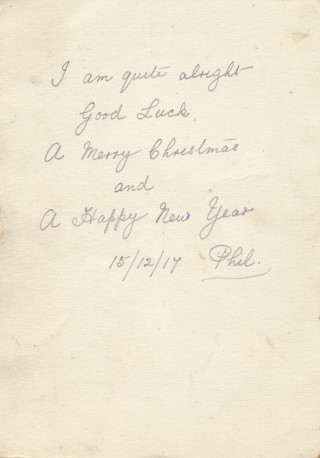 I am quite alright
Good Luck.
A Merry Christmas
and
A Happy New Year
15/12/17 Phil.